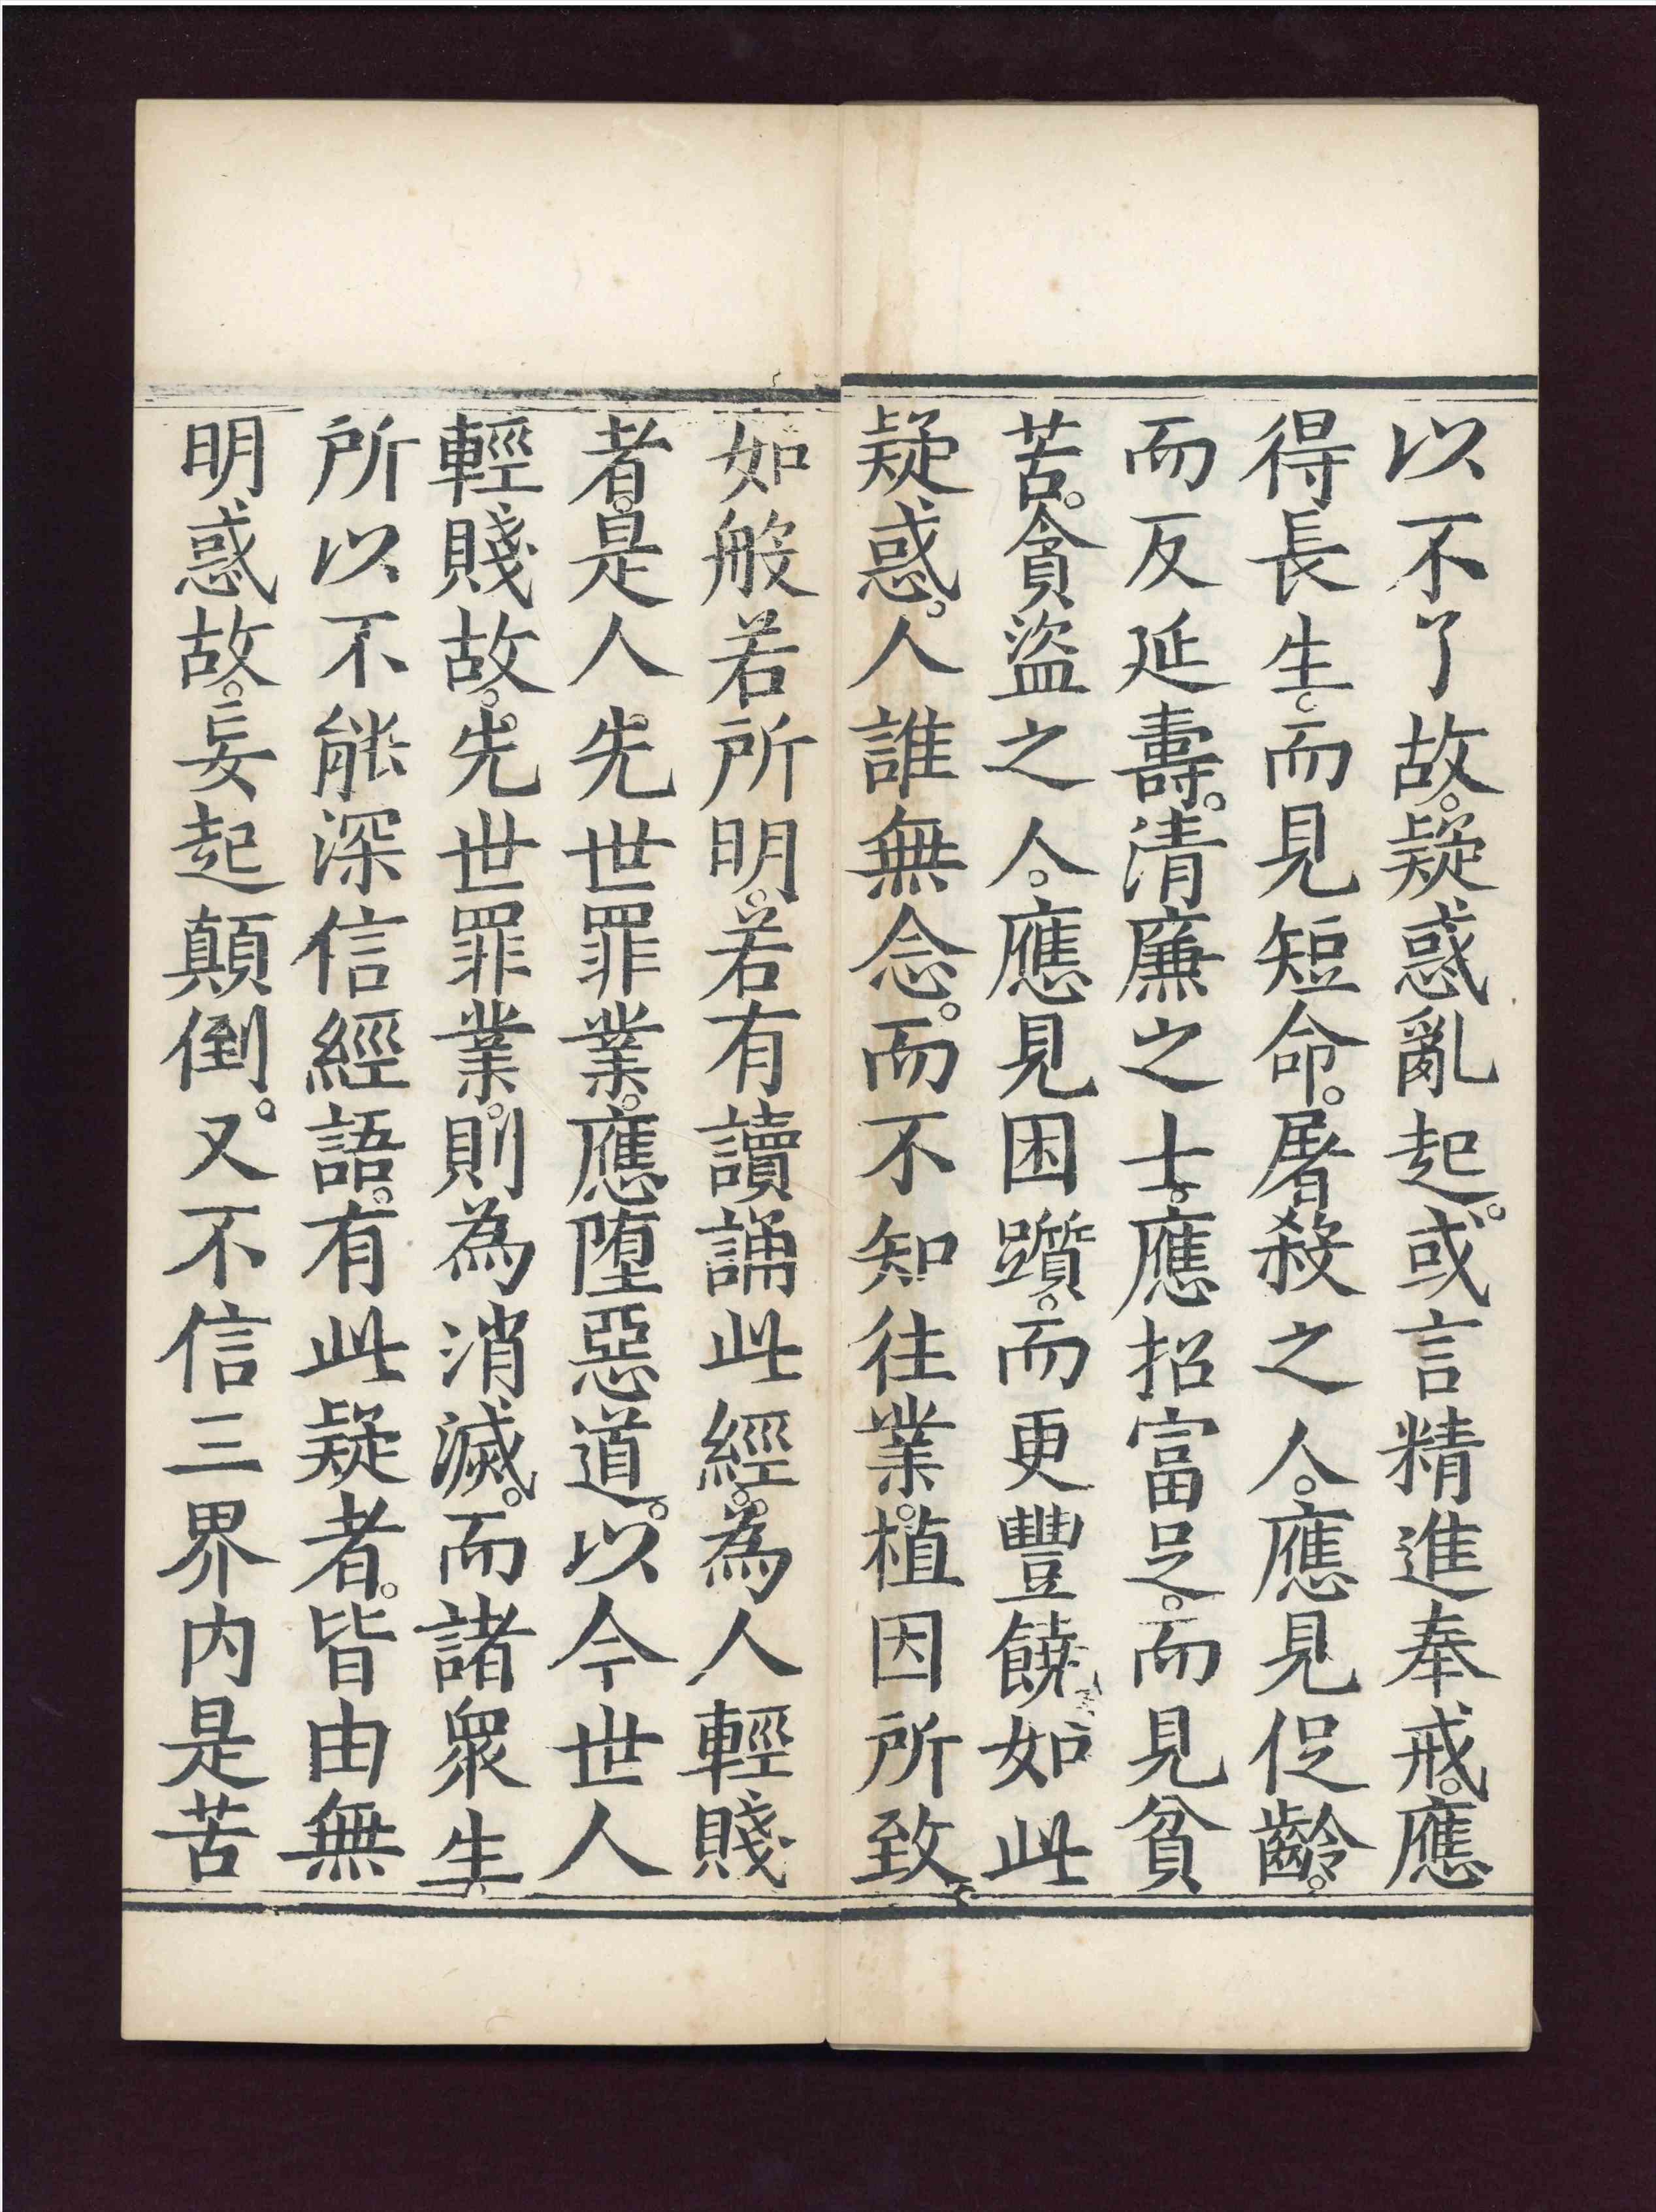 以不了故。疑惑亂起。或言精進奉戒。應
得長生。而見短命。屠殺之人。應見促齡。
而反延壽。清廉之士。應招富足。而見貧
苦。貪盜之人。應見困躓。而更豐饒。如此
疑惑。人誰無念。而不知往業。植因所致。
如般若所明。若有讀誦此經。為人輕賤
者。是人先世罪業。應墮惡道。以今世人
輕賤故。先世罪業。則為消滅。而諸眾生
所以不能深信經語。有此疑者。皆由無
明惑故。妄起顛倒。又不信三界內是苦